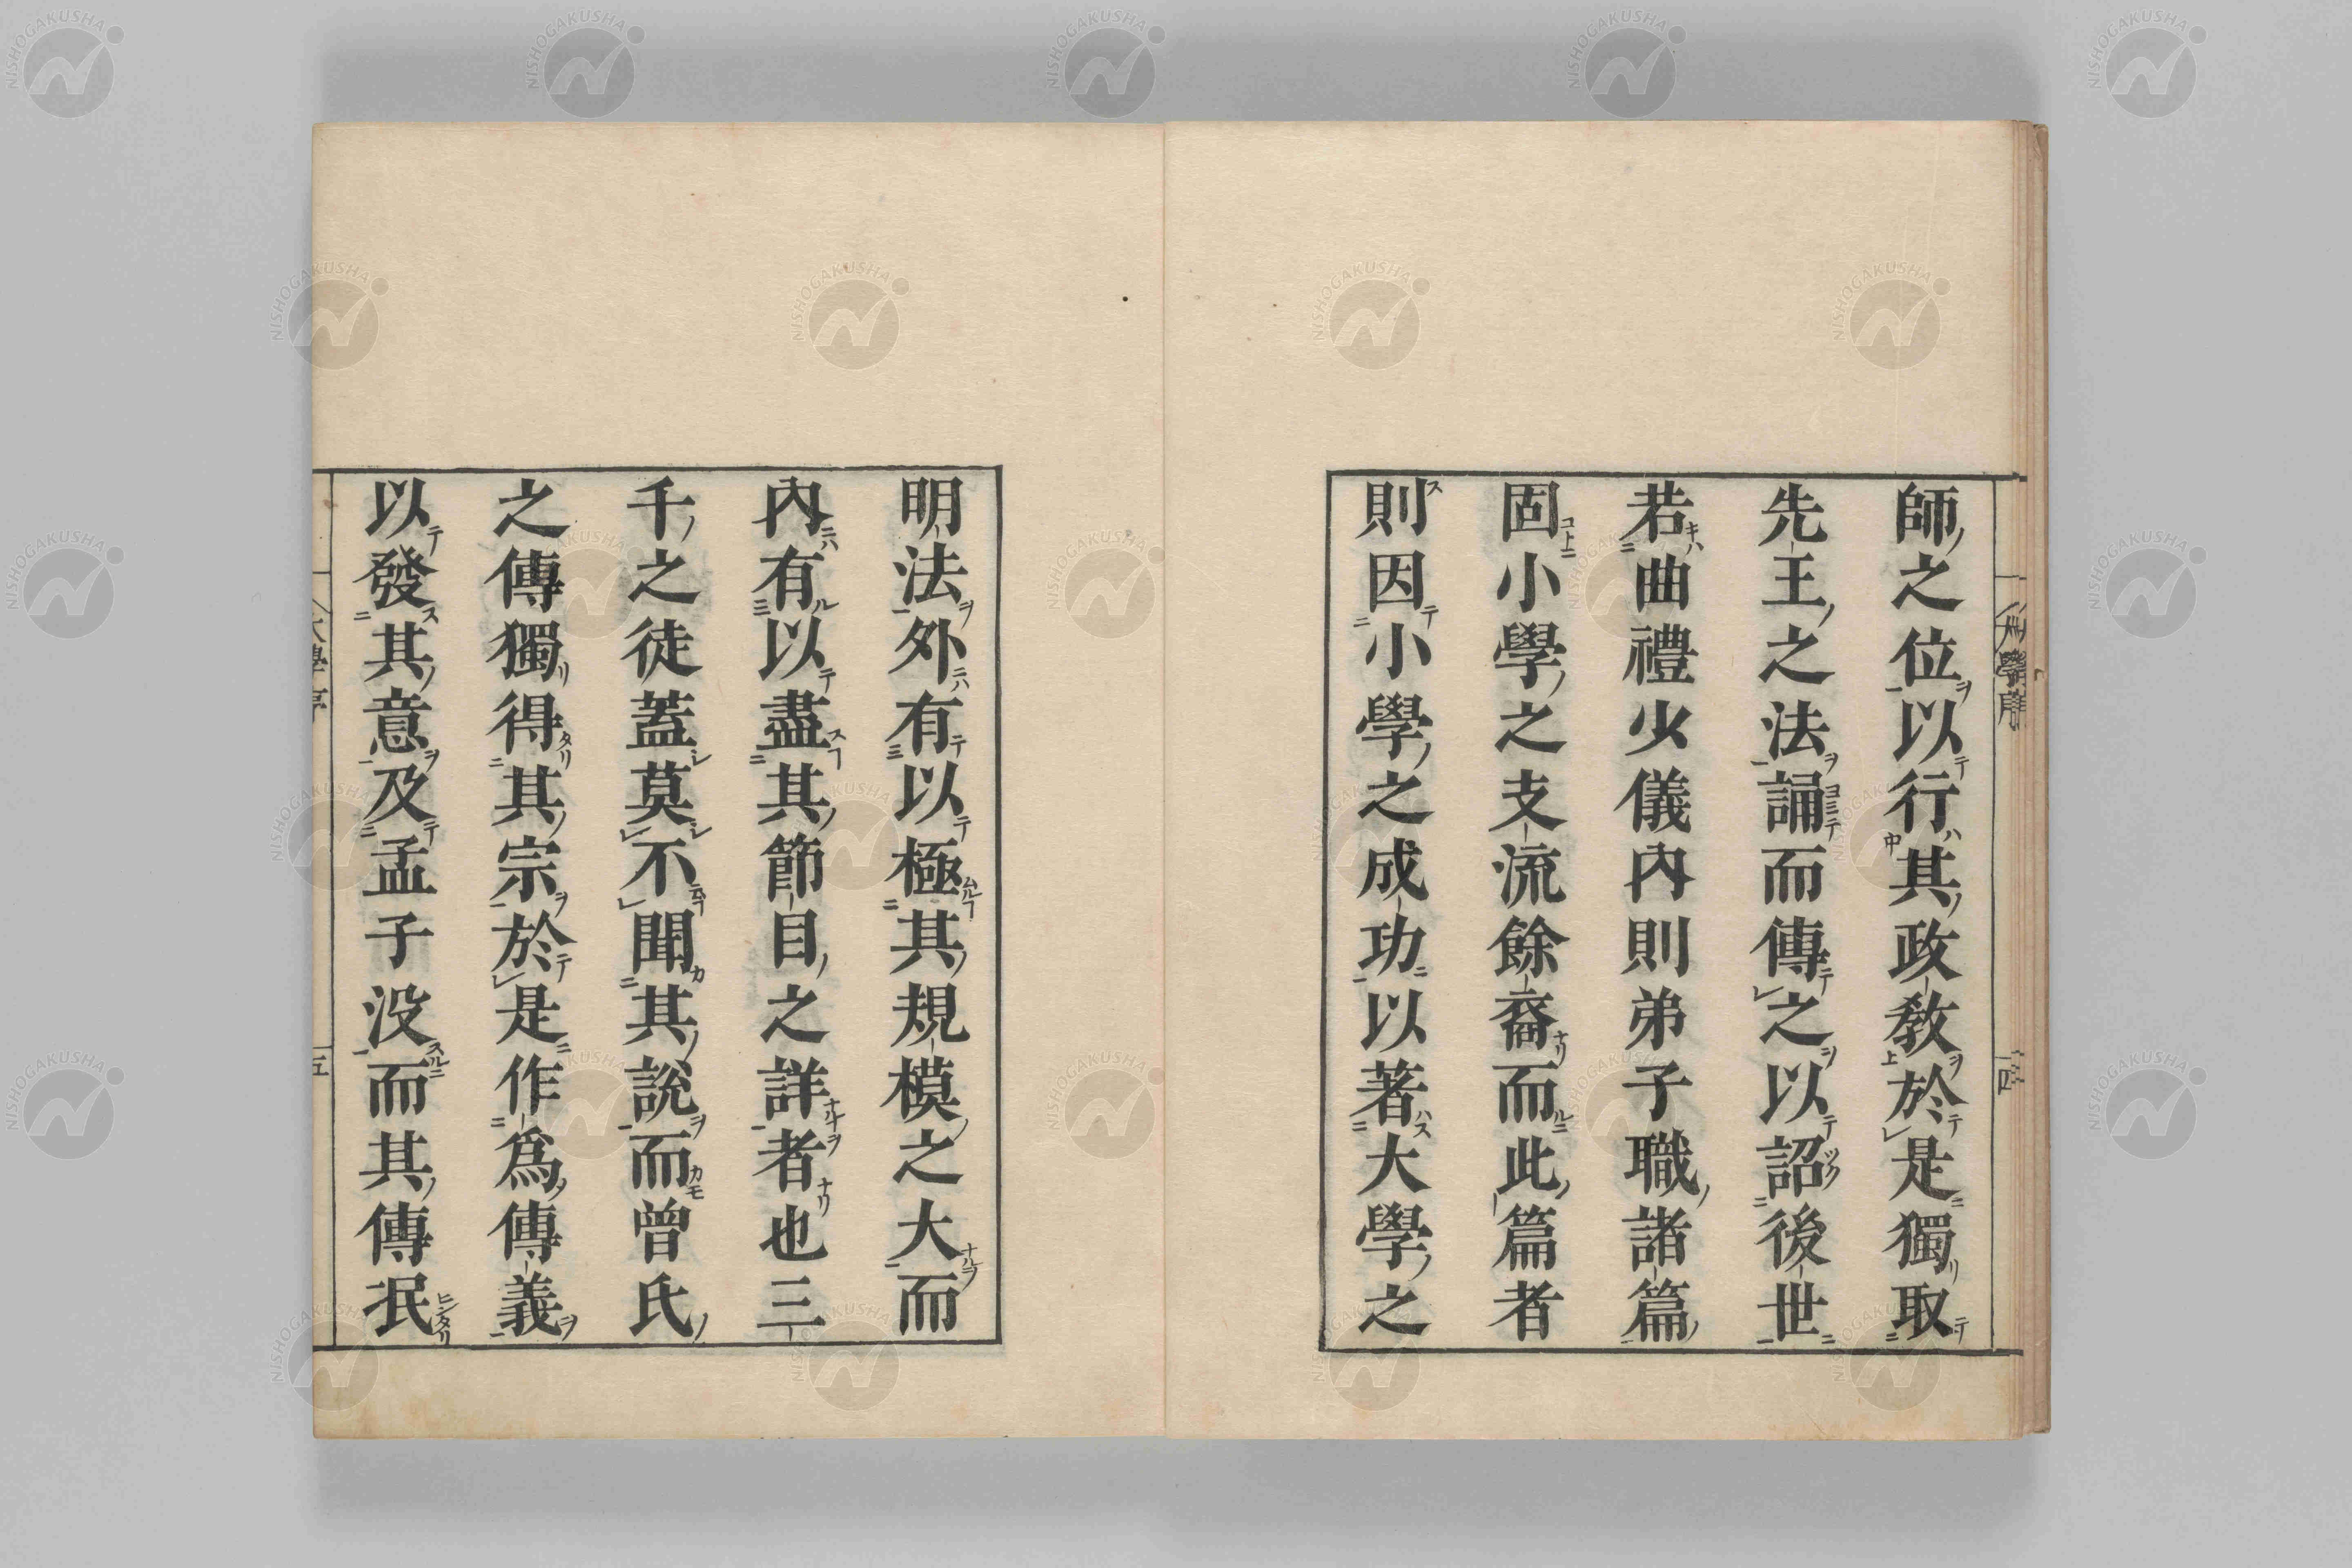 師之位以行其政教於是獨取
先王之法誦而傳之以詔後世
若曲禮少儀內則弟子職諸篇
固小學之支流餘裔而此篇者
則因小學之成功以著大學之
明法外有以極其規模之大而
內有以盡其節目之詳者也三
千之徒蓋莫不聞其說而曾氏
之傳獨得其宗於是作爲傳義
以發其意及孟子没而其傳泯
大學序
四
大學序
五
NISHOGAKUSHA